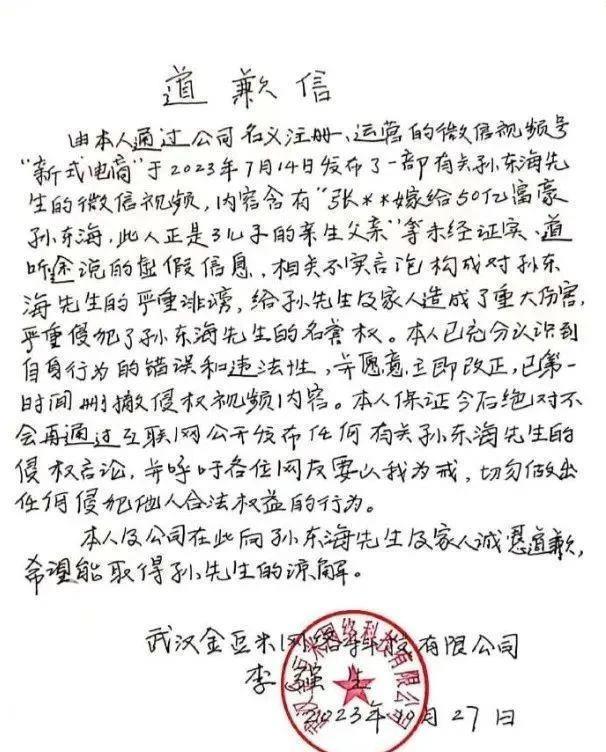 道歉信
由本人通过公司名义注册、运营的微信视频号
"新式电商"于2023年7月14日发布了一部有关孙东海先
生的微信视频,内容含有"张**嫁给50亿富豪
孙东海,此人正是3儿子的亲生父亲"等未经证实、道
听途说的虚假信息,相关不实言论构成对孙东
海先生的严重诽谤,给孙先生及家人造成了重大伤害,
严重侵犯了孙东海先生的名誉权。本人已充分认识到
自身行为的错误和违法性,并愿意立即改正,已第一
时间删撤侵权视频内容。本人保证今后绝对不
会再通过互联网公开发布任何有关孙东海先生的
侵权言论,并呼吁各位网友要以我为戒,切勿做出
任何侵犯他人合法权益的行为。
本人及公司在此向孙东海先生及家人诚恳道歉,
希望能取得孙先生的谅解。
武汉金豆米网络科技有限公司
李强生
2023年10月27日